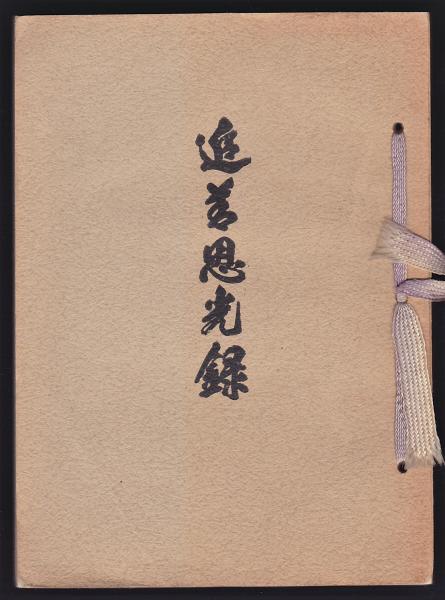 追善恩光録